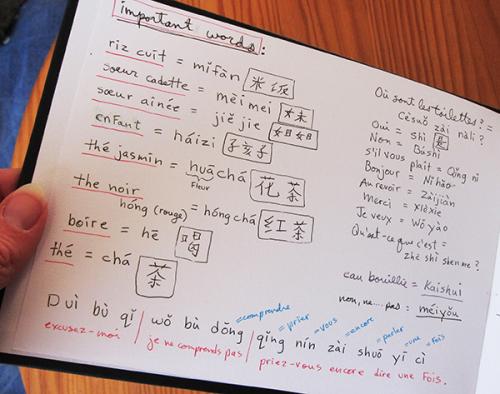 important words:
riz cuit = mǐfàn 米饭
sœur cadette = mèi mei 妹妹
sœur ainée = jiě jie 姐姐
enfant = háizi 孩子
thé jasmin = huā chá 花茶
fleur
the noir = hóng chá 红茶
hóng (rouge)
boire = hē 喝
thé = chá 茶
Où sont les toilettes? =
Cèsuǒ zài nàli?
Oui = shì 是
Non = Búshì
s'il vous plait = Qǐng nǐ
Bonjour = Nǐ hǎo
Au revoir = Zàijiàn
Merci = Xièxie
Je veux = Wǒ yào
Qu'est-ce que c'est =
zhè shì shenme?
eau bouillie = Kaishui
non, ne.... pas = méiyǒu
=comprendre =prier =vous =encore =parler =une =fois
Duì bù qǐ / wǒ bù dǒng / qǐng nín zài shuō yí cì
excusez-mois / je ne comprends pas / priez-vous encore dire une fois.